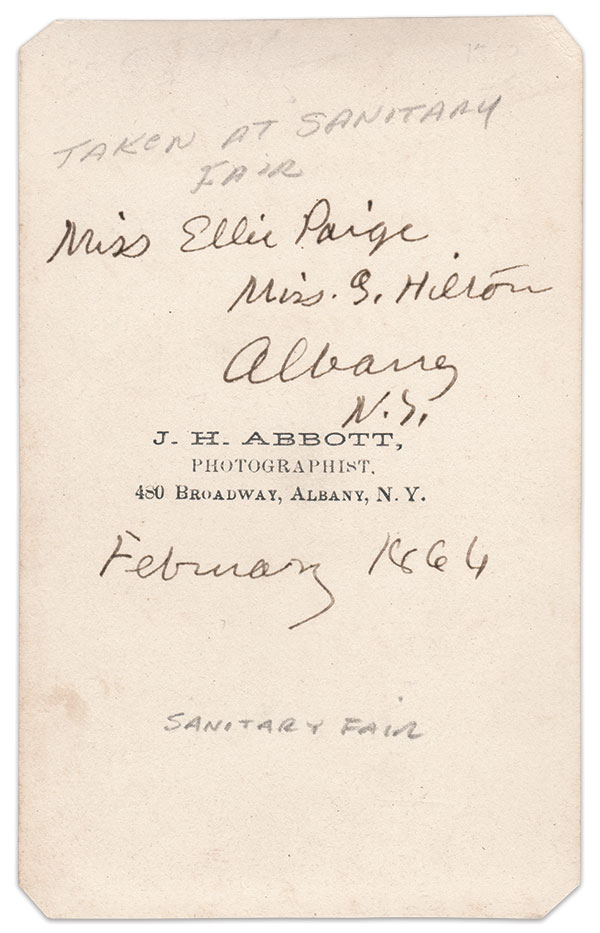 TAKEN AT SANITARY
FAIR
Miss Ellie Paige
Miss. G. Hilton
Albany
N.Y.
J. H. ABBOTT,
PHOTOGRAPHIST,
480 BROADWAY, ALBANY, N. Y.
February 1864
SANITARY FAIR